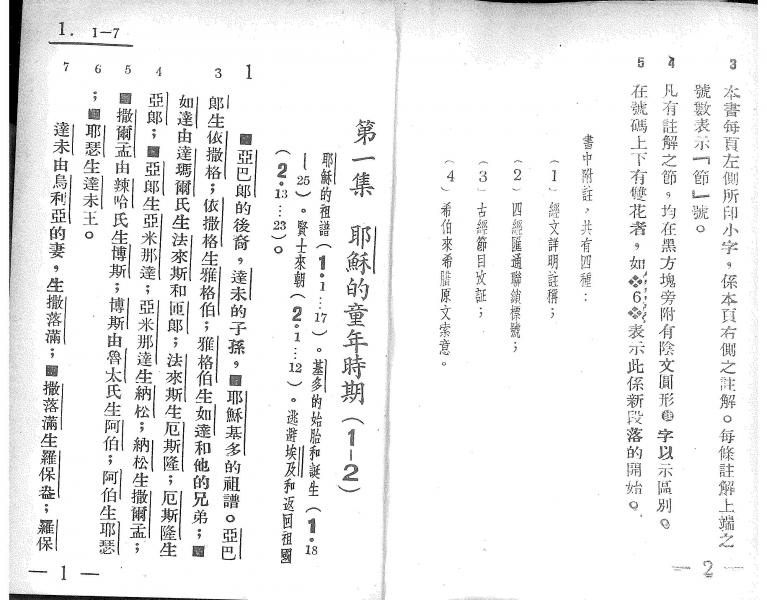 3　本書每頁左側所印小字，係本頁右側之註解。每條註解上端之
號數表示『節』號。
4　凡有註解之節，均在黑方塊旁附有陰文圓形註字以示區別。
5　在號碼上下有雙花者，如※6，※表示此係新段落的開始。
書中附註，共有四種：
(1)經文詳明註稱；
(2)四經匯通聯鎖標號；
(3)古經節目攷証；
(4)希伯來希腊原文索意。
— 2 —
1. 1—7
第一集　耶穌的童年時期(1—2)
耶穌的祖譜(1·1…17)。基多的始胎和誕生(1·18
—25)。賢士來朝(2·1…12)。逃避埃及和返回祖國
(2·13…23)。
1　■亞巴郎的後裔，達未的子孫，■耶穌基多的祖譜。亞巴
3　郎生依撒格；依撒格生雅格伯；雅格伯生如達和他的兄弟；■
如達由達瑪爾氏生法來斯和匝郎；法來斯生厄斯隆；厄斯隆生
4　亞郎；■亞郎生亞米那達；亞米那達生納松；納松生撒爾孟；
5　■撒爾孟由辣哈氏生博斯；博斯由魯太氏生阿伯；阿伯生耶瑟
6　；■耶瑟生達未王。
7　達未由烏利亞的妻，生撒落滿；■撒落滿生羅保盎；羅保
— 1 —